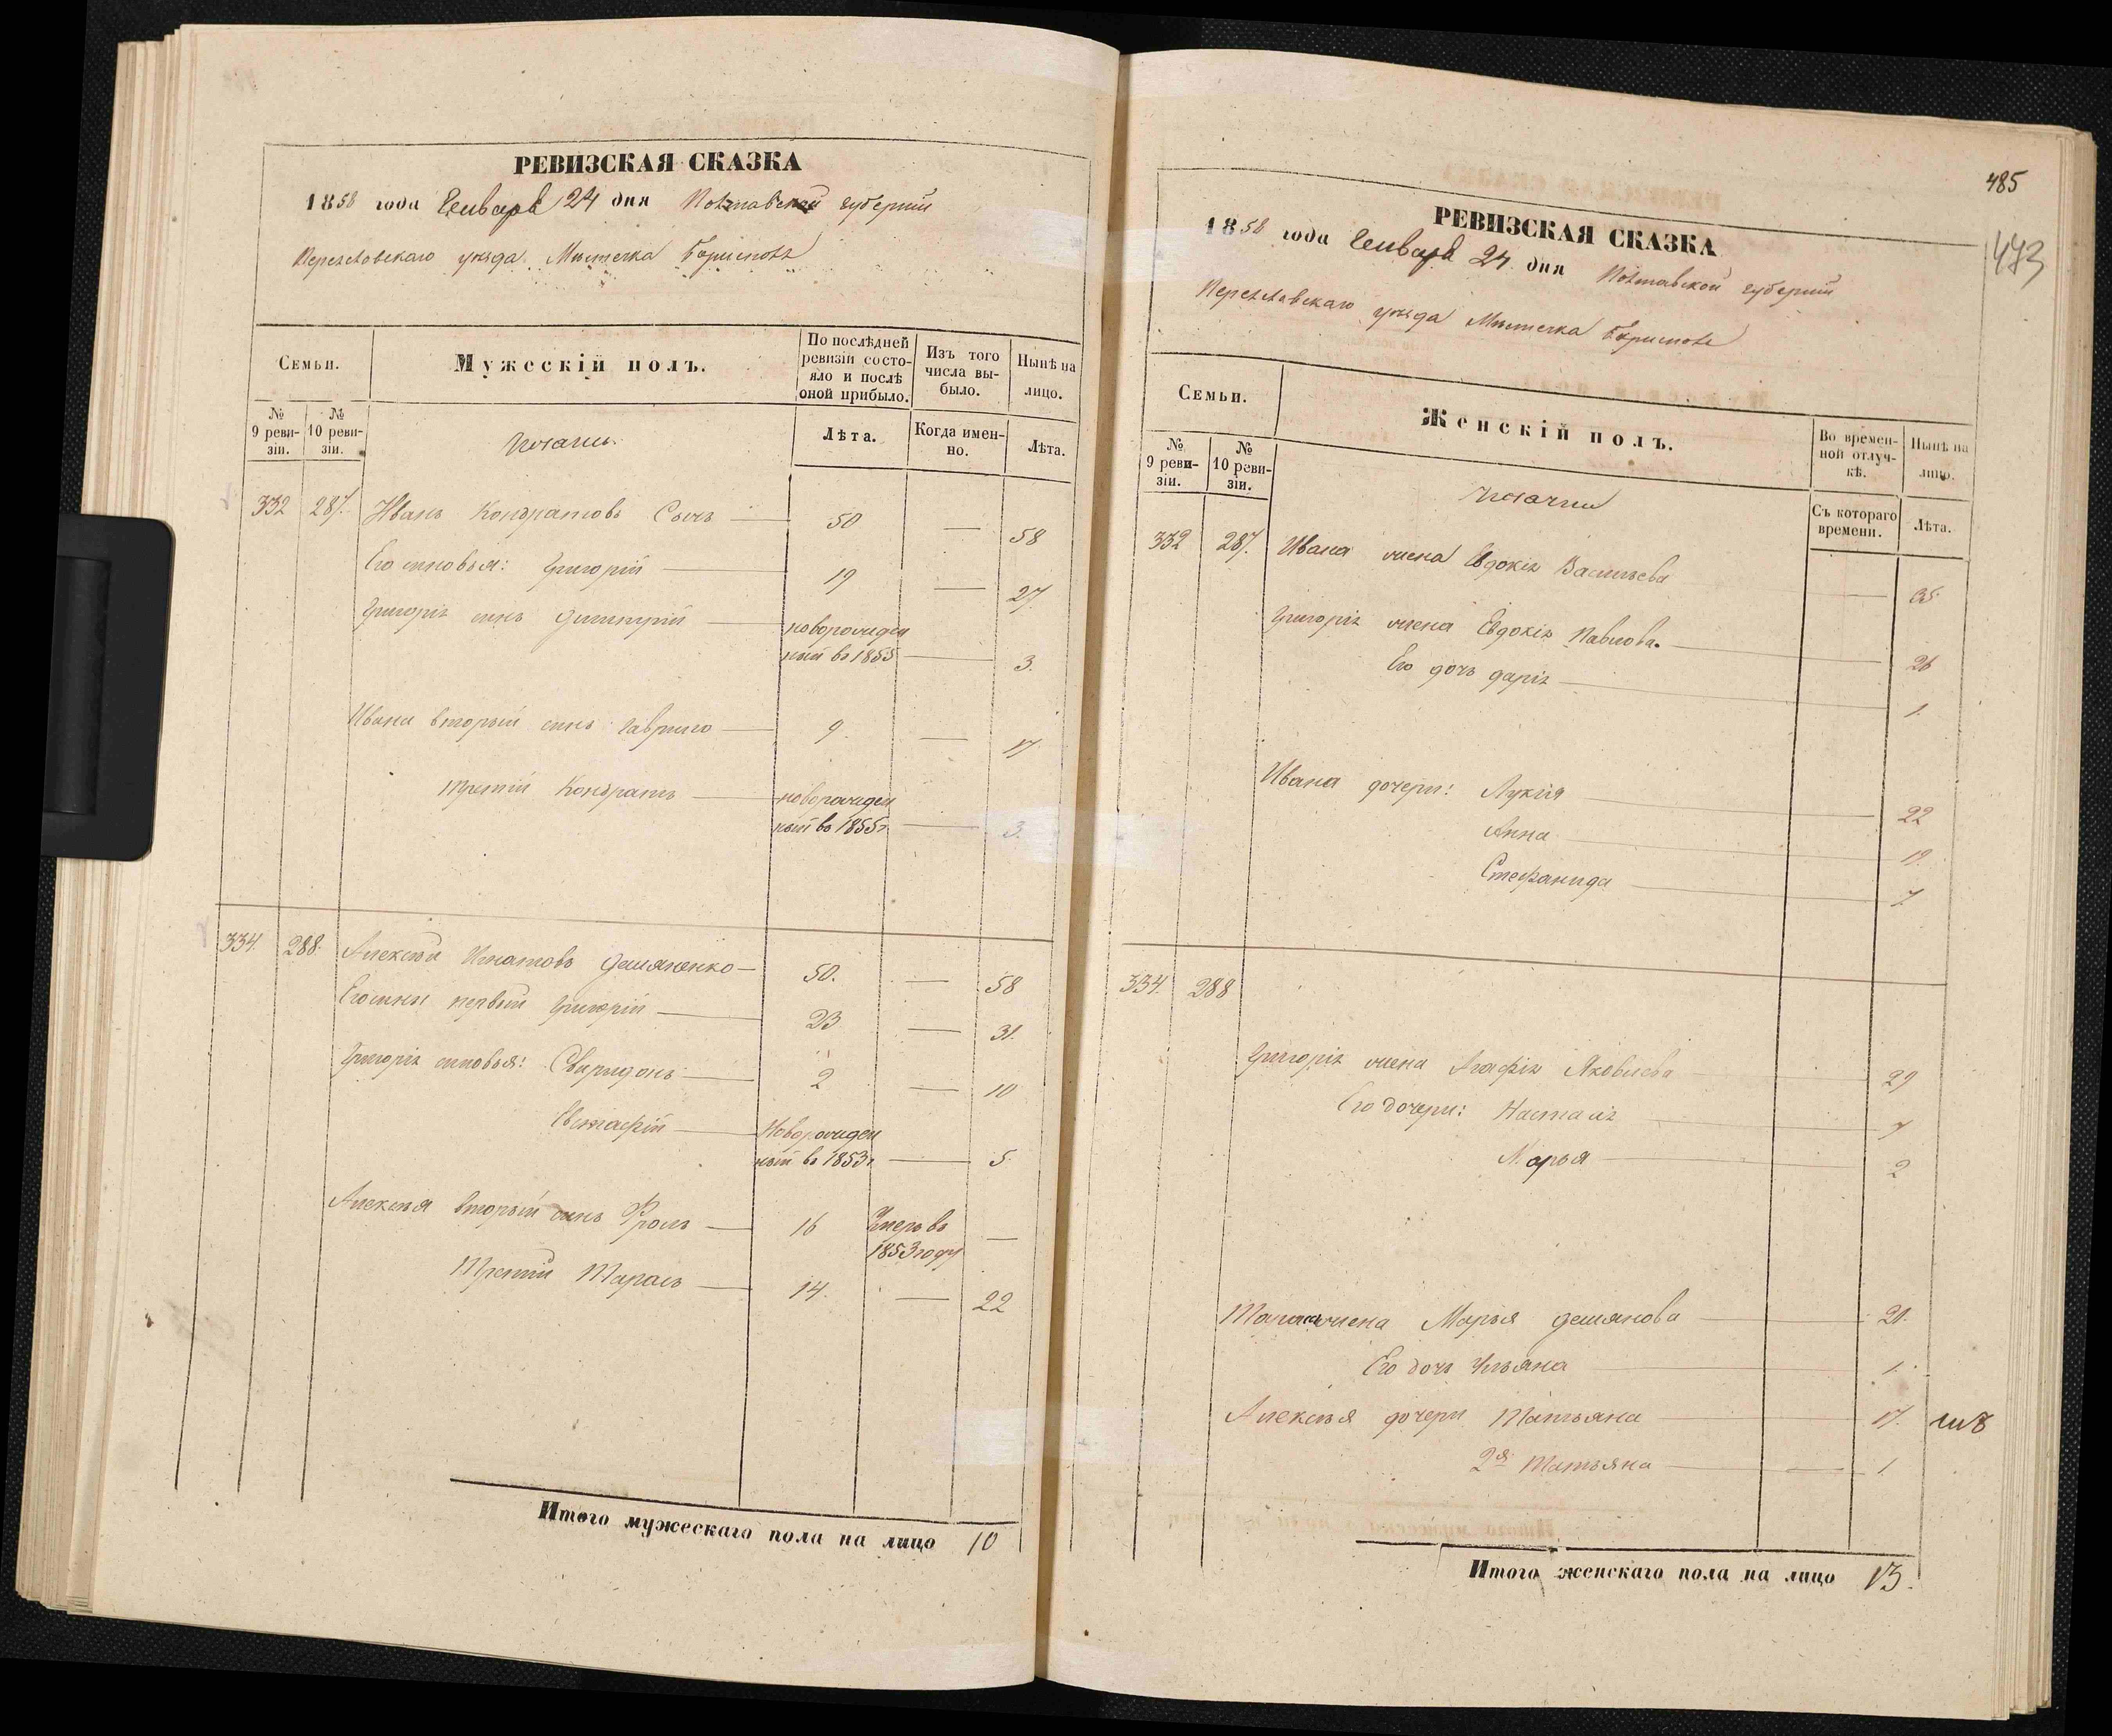 РЕВИЗСКАЯ СКАЗКА
1858 года Генваря 24 дня Полтавской губерніи
Переяславскаго уѣзда Мѣстечка Борисполя
Семьи.
Мужескій полъ.
По послѣдней ревизіи состояло и послѣ оной прибыло.
Изъ того числа выбыло.
Нынѣ на лицо.
№ 9 ревизіи.
№ 10 ревизіи.
Лѣта.
Когда именно.
Лѣта.
332 287. Иванъ Кондратовъ Сычъ 50 — 58
Его сыновья: Григорій 19 — 27
Григорія сынъ Димитрій новорожденный въ 1855 — 3.
Ивана вторый сынъ Гаврило 9. — 17.
третій Кондратъ новорожденный въ 1855 г. — 3.
334. 288. Алексѣй Игнатовъ Демяненко 50. — 58
Его сыны первый Григорій 23 — 31.
Григорія сыновья: Свиридонъ 2 — 10
Евстафій Новорожденный въ 1853 г. — 5.
Алексѣя вторый сынъ Фролъ 16 Умеръ въ 1853 году —
Третій Тарасъ 14. — 22
Итого мужескаго пола на лицо 10
485
473
РЕВИЗСКАЯ СКАЗКА
1858 года Генваря 24 дня Полтавской губерніи
Переяславскаго уѣзда Мѣстечка Борисполя
Семьи.
Женскій полъ.
Во временной отлучкѣ.
Нынѣ на лицо.
№ 9 ревизіи.
№ 10 ревизіи.
Съ котораго времени.
Лѣта.
332 287. Ивана жена Евдокія Васильева — 35.
Григорія жена Евдокія Павлова. — 26
Его дочь Дарія 1.
Ивана дочери: Лукія 22
Анна 19.
Стефанида 7.
334. 288
Григорія жена Агафія Яковлева 29
Его дочери: Настасія 7
Марья 2
Тараса жена Марья Демянова 21.
Его дочь Ульяна 1.
Алексѣя дочери Татьяна 17.
2я Татьяна — 1.
Итого женскаго пола на лицо 13.